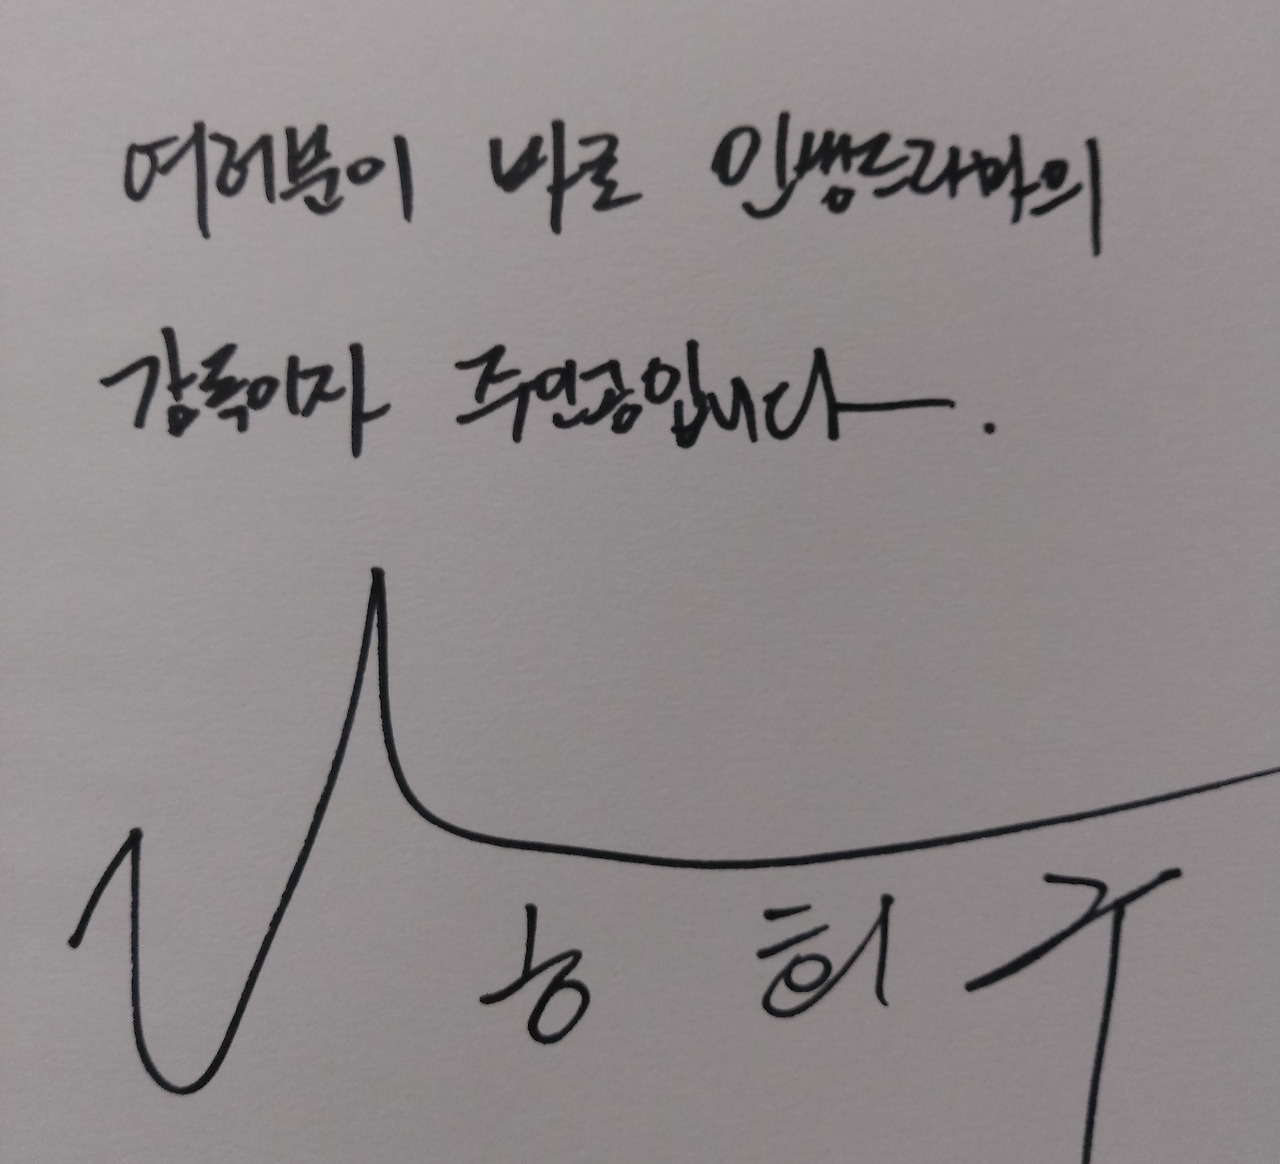 여러분이 바로 인생드라마의
감독이자 주인공입니다.
희구